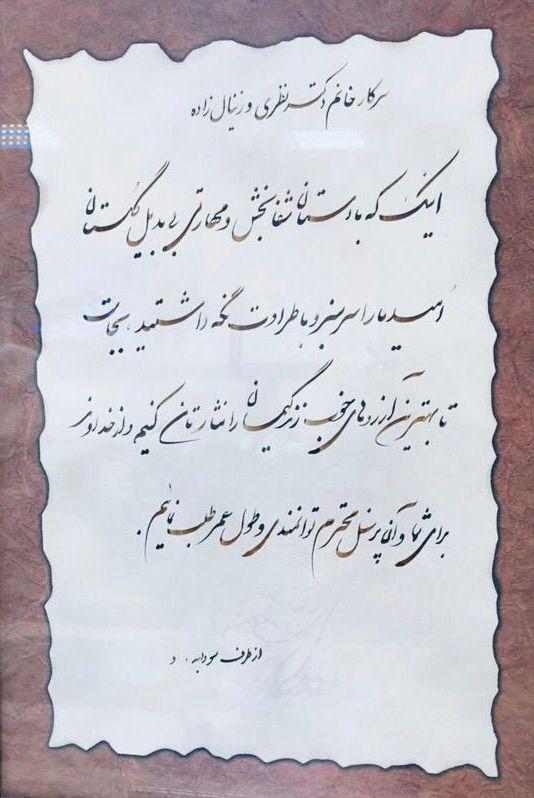 سرکار خانم دکتر نظری و زینال زاده
اینک که با دستان شفابخش و مهارتی بی بدیل گلستان
امید ما را سرسبز و با طراوت نگه داشتید، بجاست
تا بهترین آرزوهای خوب زندگیمان را نثارتان کنیم و از خداوند
برای شما و آن پرسنل محترم توانمندی و طول عمر طلب نمائیم.
از طرف سودابه . د